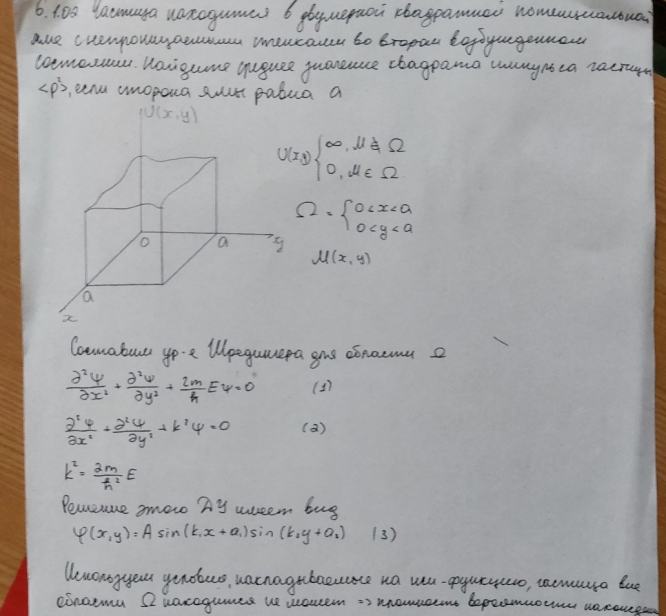 6.1.03 Частица находится в двумерной квадратной потенциальной
яме с непроницаемыми стенками во втором возбужденном
состоянии. Найдите среднее значение квадрата импульса частицы
<p²>, если сторона ямы равна a
U(x,y)
U(x,y) { ∞, M ∉ Ω
0, M ∈ Ω
Ω = { 0<x<a
0<y<a
M(x,y)
0 a y
a
x
Составим ур-е Шредингера для области Ω
∂²Ψ/∂x² + ∂²Ψ/∂y² + 2m/ħ EΨ=0 (1)
∂²Ψ/∂x² + ∂²Ψ/∂y² + k²Ψ=0 (2)
k² = 2m/ħ² E
Решение этого ДУ имеет вид
Ψ(x,y)=A sin(k₁x+a₁)sin(k₂y+a₂) (3)
Используем условия, накладываемые на пси-функцию, частица вне
области Ω находится не может => плотность вероятности